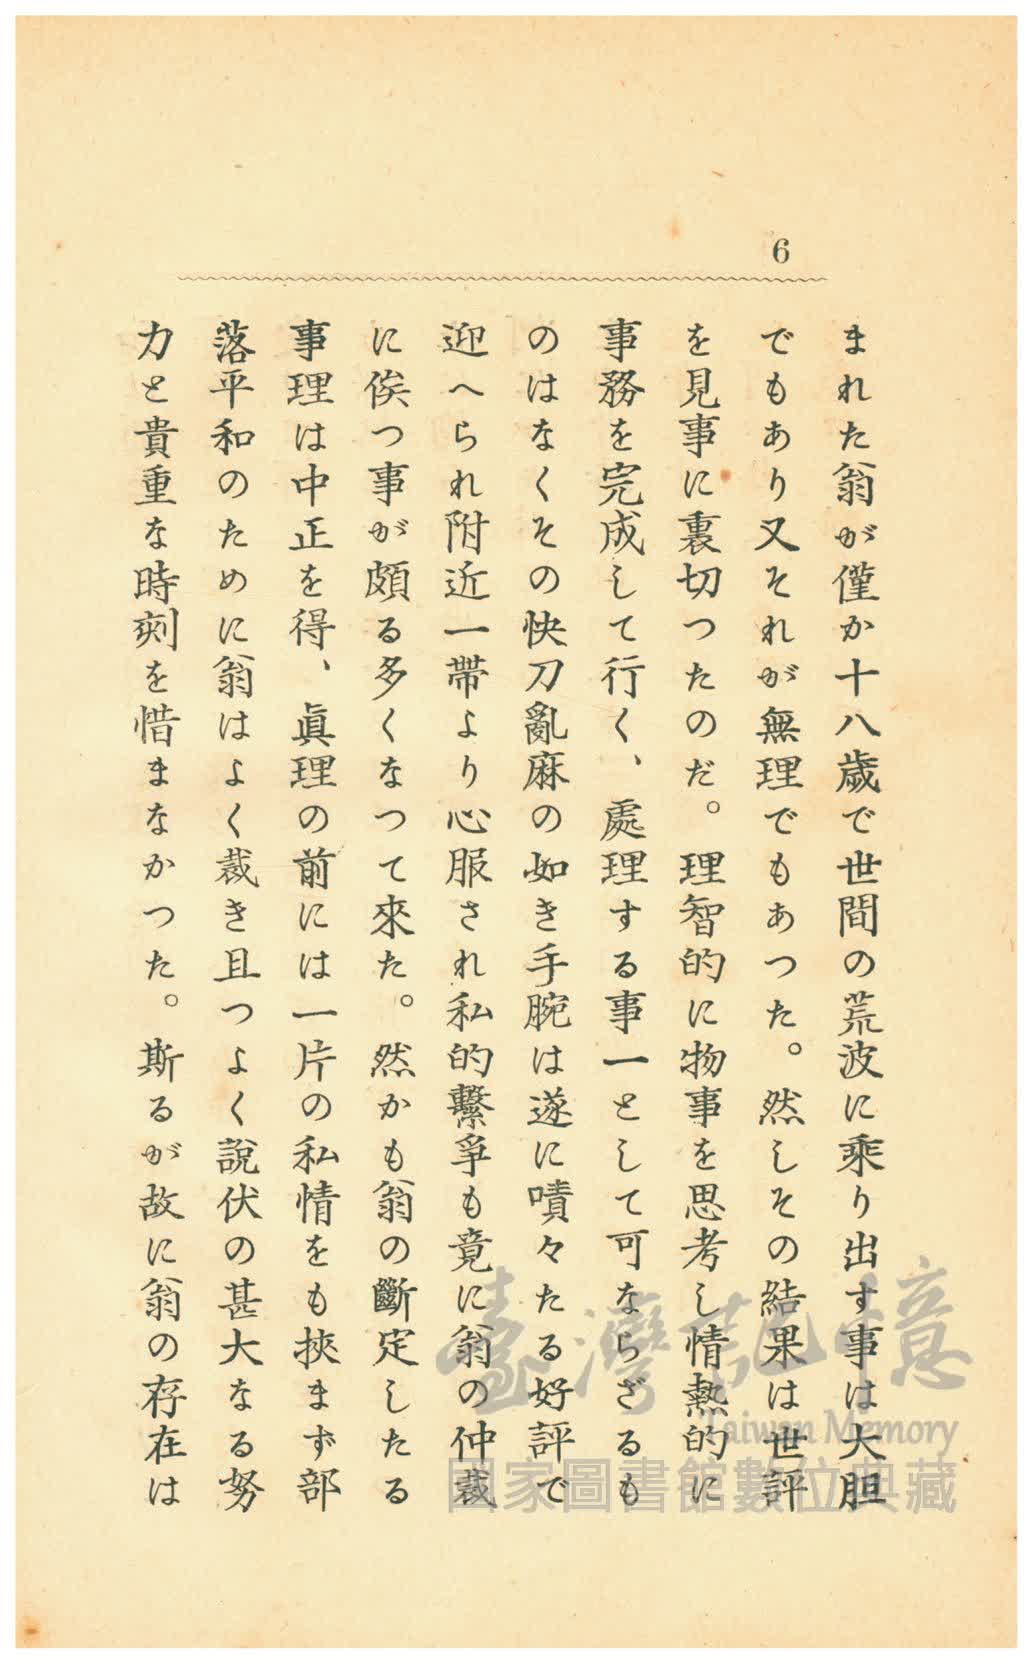 6
まれた翁が僅か十八歲で世間の荒波に乘り出す事は大胆
でもあり又それが無理でもあつた。然しその結果は世評
を見事に裏切つたのだ。理智的に物事を思考し情熱的に
事務を完成して行く、處理する事一として可ならざるも
のはなくその快刀亂麻の如き手腕は遂に嘖々たる好評で
迎へられ附近一帶より心服され私的繫爭も竟に翁の仲裁
に俟つ事が頗る多くなつて來た。然かも翁の斷定したる
事理は中正を得、眞理の前には一片の私情をも挾まず部
落平和のために翁はよく裁き且つよく說伏の甚大なる努
力と貴重な時刻を惜まなかつた。斯るが故に翁の存在は
臺灣記憶
Taiwan Memory
國家圖書館數位典藏